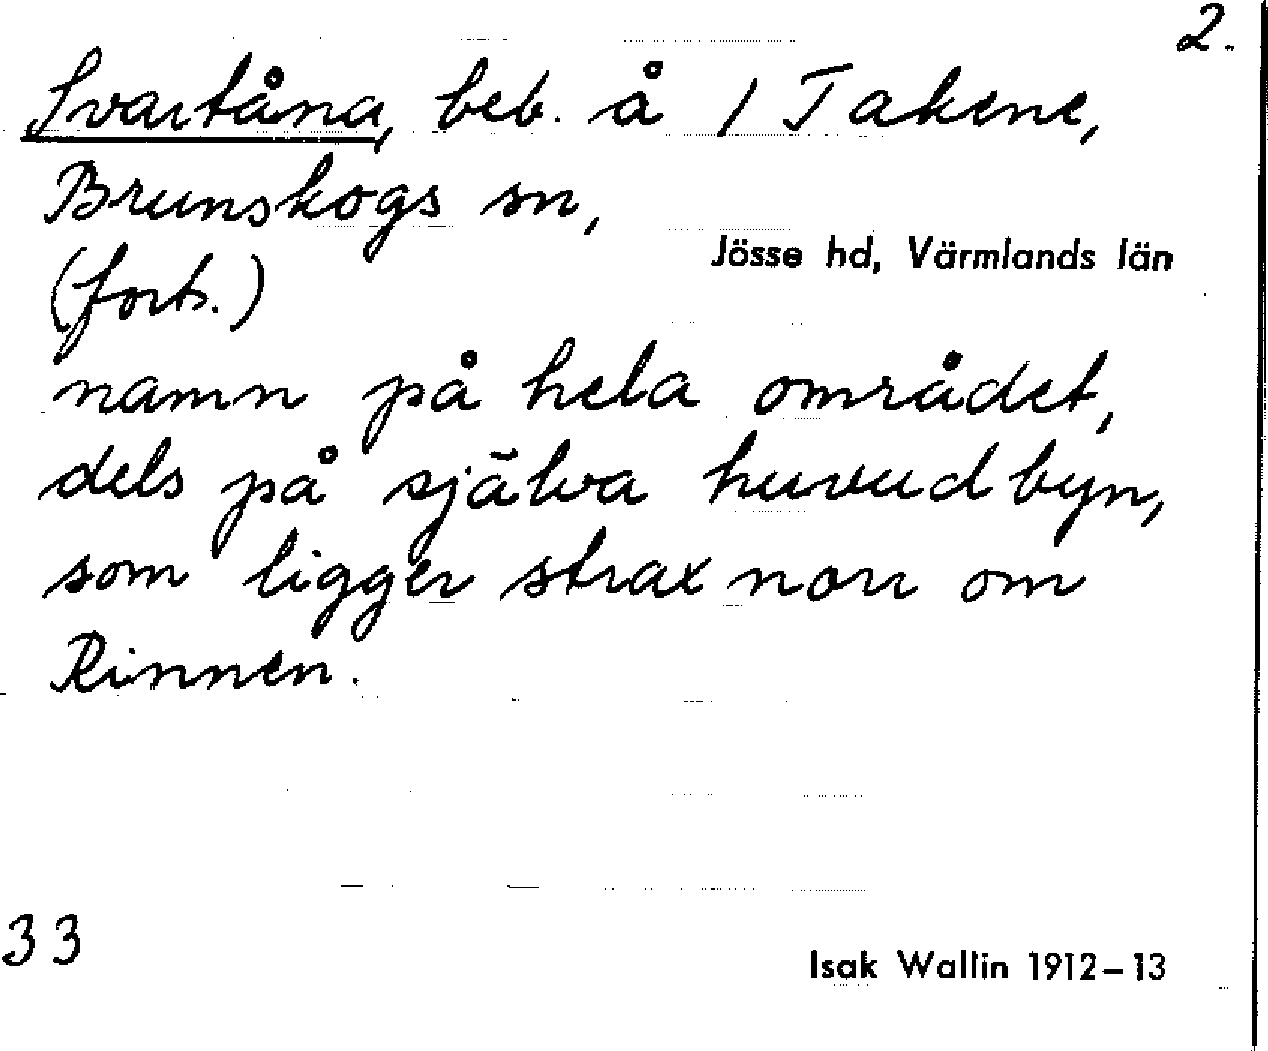 2.
Svartåna, beb. å 1 Takene,
Brunskogs sn,
Jösse hd, Värmlands län
(forts.)
namn på hela området,
dels på själva huvudbyn,
som ligger strax norr om
Rinnen.
33
Isak Wallin 1912–13